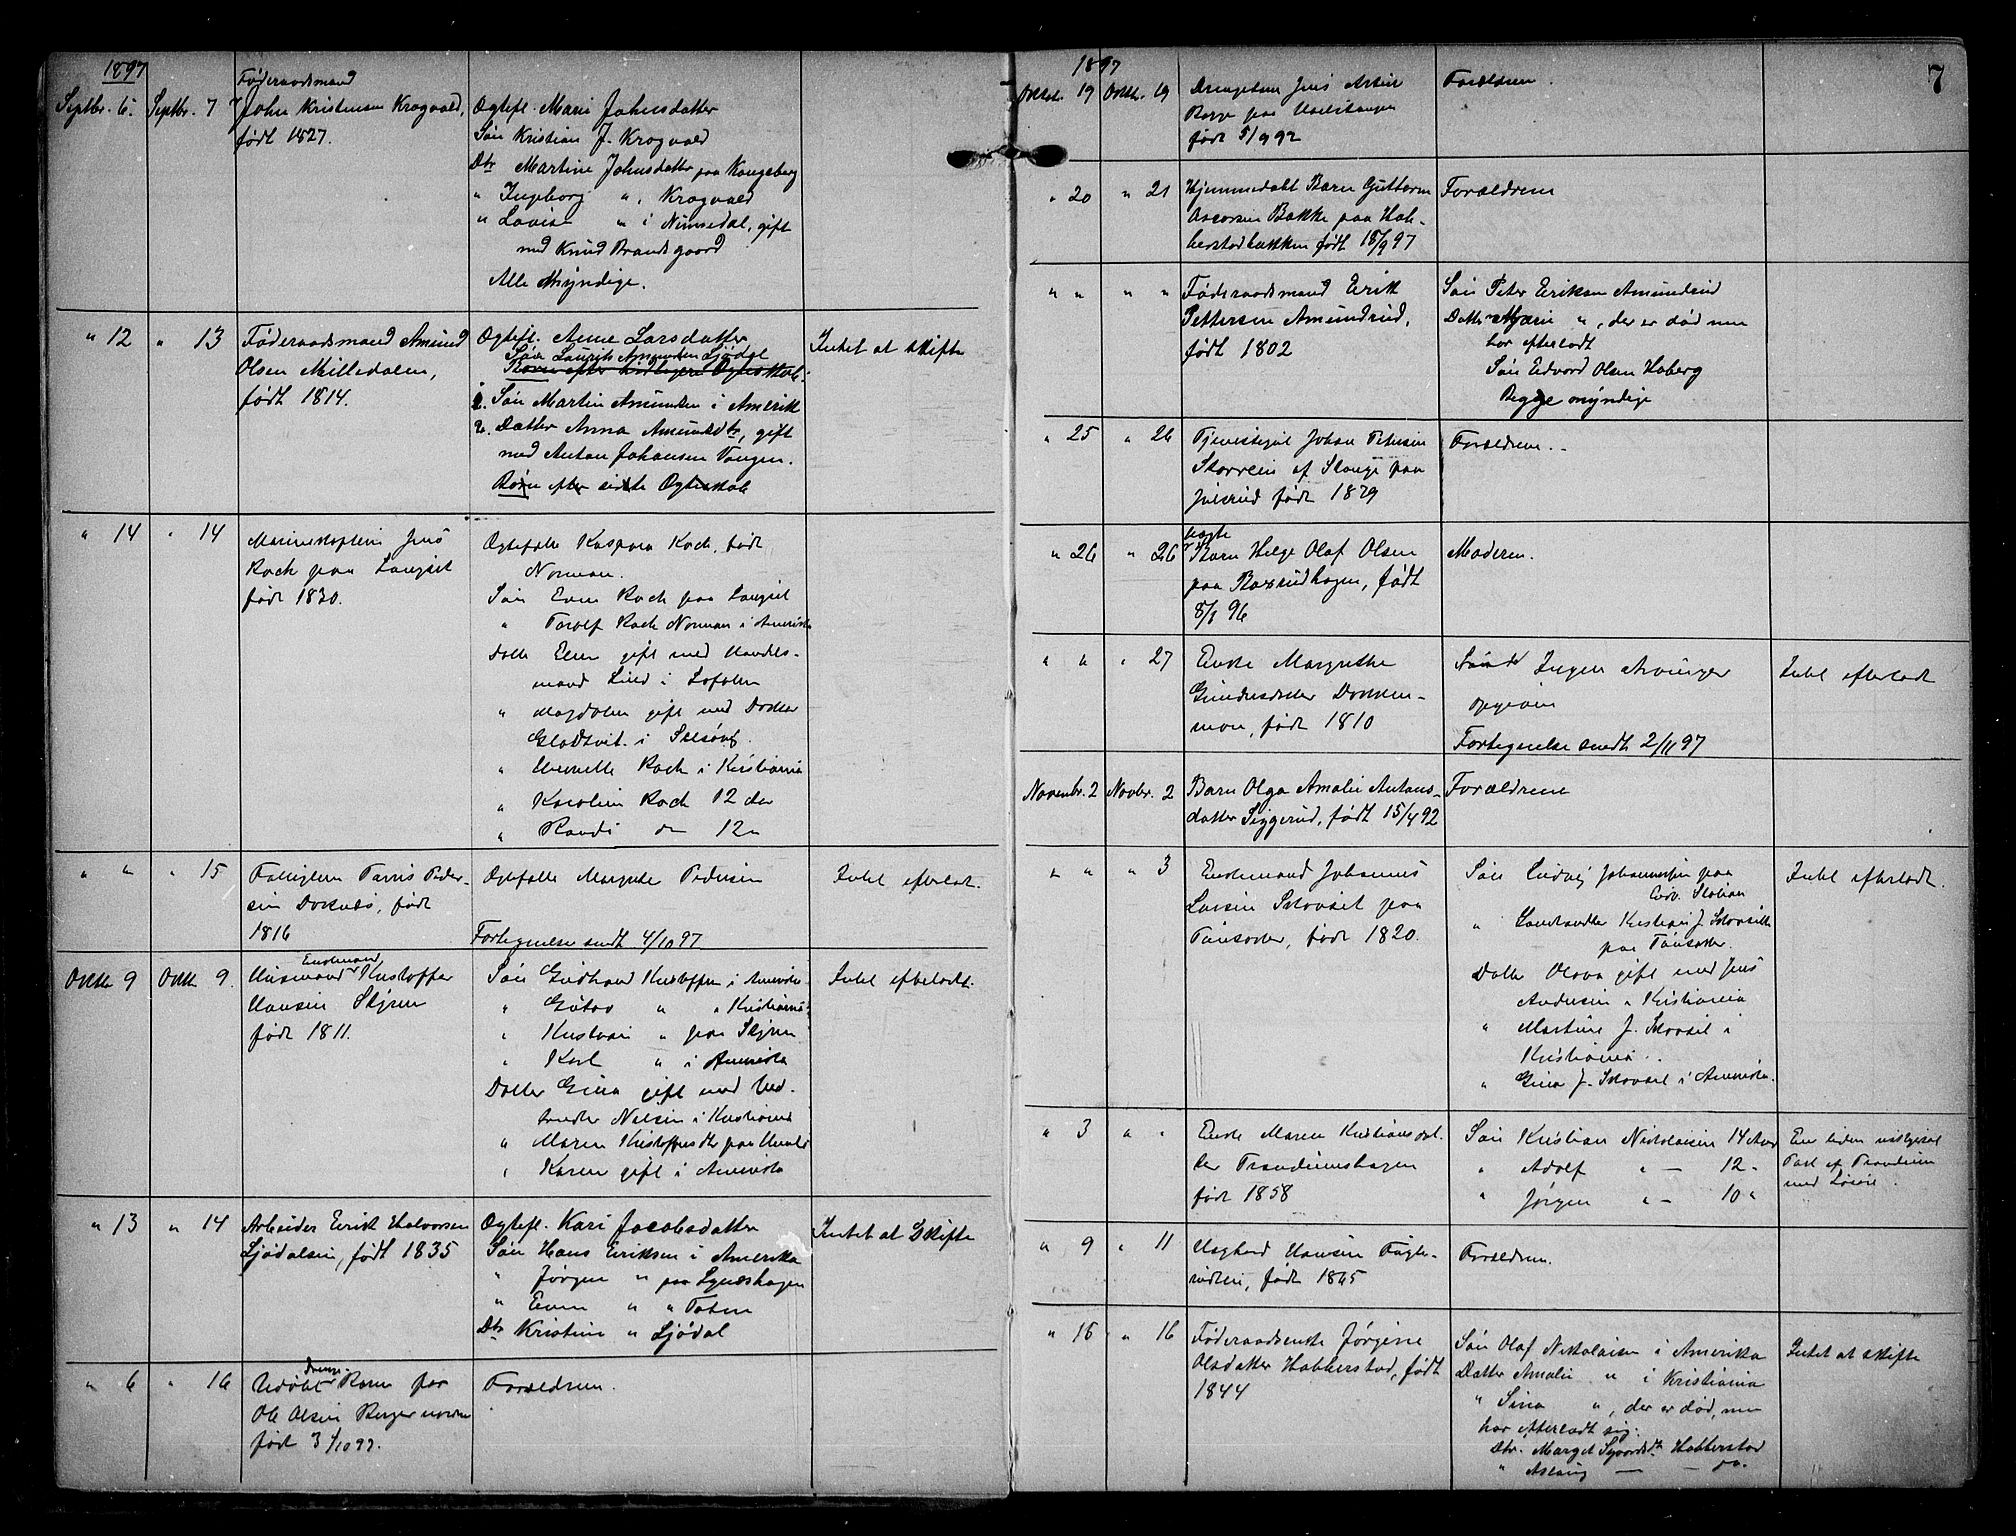 1897
Septbr. 6. Septbr. 7
Føderaadsmand
John Kristensen Krogvald,
født 1827.
Ægtefl. Marie Johnsdatter
Søn Kristian J. Krogvald
Dtr Martine Johnsdatter paa Kongsberg
" Ingeborg " , Krogvald
" Lovise " i Numedal, gift
med Knud Brandsgaard
Alle Myndige.
" 12 " 13
Føderaadsmand Amund
Olsen Milledalen,
født 1814.
Ægtefl. Anne Larsdatter
Søn Laurits Amundsen Ljødal
Børn efter tidligere Ægteskab:
1. Søn Martin Amundsen i Amerik
2. Datter Anna Amundsdtr, gift
med Anton Johansen Vangen.
Børn efter sidste Ægteskab
Intet at skifte
" 14 " 14
Jens
Koch paa Langset
født 1830.
Ægtefælle Kaspara Koch, født
Norman.
Søn Even Koch paa Langset
" Torolf Koch Norman i Amerika
Datter Ellen gift med Handels-
mand Lind i Lofoten
" Magdalen gift med Doktor
i
" Koch i Kristiania
" Karoline Koch 12 do
" Randi do 12 "
" " " 15
Peder-
sen Doknes, født
1816
Ægtefælle Margrete Pedersen
Fortegnelse sendt 4/10 97
Intet efterladt.
Oktbr 9 Oktbr 9.
Enkemand
Husmand Kristoffer
Hansen Skjren
født 1811.
Søn Gudbrand Kristoffersen i Amerika
" Gustav " " Kristiania
" Kristian " paa Skjren
" Karl " i Amerika
Datter Gina gift med Ved-
handler Nilsen i Kristiania
" Maren Kristoffersdtr paa
" Karen gift i Amerika
Intet efterladt.
" 13 " 14
Arbeider Eirik Halvorsen
Ljødalseie, født 1835
Ægtefl. Kari Jacobsdatter
Søn Hans Eriksen i Amerika
" Jørgen " paa Lyneshagen
" Even " " Toten
Dtr Kristine " Ljødal
Intet at Skifte
" 6 " 16
Drenge-
Udøbt Barn for
Ole Olsen
født 3/10 97.
Forældrene.
1897
7
Oktbr. 19 Oktbr. 19
Drengebarn Jens Artur
Borge paa
født 5/9 92
Forældrene.
" 20 " 21
Hjemmedøbt Barn Guttorm
Oscarsen Bakke paa Hab-
berstadbakken født 18/9 97
Forældrene
" " " "
Føderaadsmand Eirik
Pettersen Amundrud,
født 1802
Søn Peter Eriksen Amundrud
Datter Marie " , der er død men
har efterladt
Søn Edvard Olsen Haberg
Begge myndige
" 25 " 26
Tjenestepige Johan Petersen
af Stange paa
Julsrud født 1879
Forældrene.
" 26 " 26
uægte
Barn Helge Olaf Olsen
paa Basrudhagen, født
8/1 96
Moderen.
" " " 27
Enke Margrethe
Gundersdatter Dokken-
moen, født 1810
Ingen Arvinger
opgivne
Fortegnelse sendt 2/11 97
Intet efterladt
Novembr. 2 Novbr. 2
Barn Olga Amalie Antons-
datter Siggerud, født 15/4 92
Forældrene
" " " 3
Enkemand Johannes
Larsen Skovset paa
Tunsæter, født 1820.
Søn Ludvig Johannessen paa
Eidsv. Station
" Landhandler Kristian J. Skovseth
paa Tunsæter.
Datter Olava gift med Jens
Andersen i Kristiania
" Martine J. Skovset i
Kristiania.
" Gina J. Skovset i Amerika.
Intet efterladt.
" 3 " "
Enke Maren Kristiansdat-
ter Trandumshagen
født 1858
Søn Kristian Nikolaisen 14 Aar
" Adolf " — 12 "
" Jørgen " — 10 "
En liden
Part af Trandum
med Løsøre.
" 9 " 11
Ungkarl Hansen
født 1865
Forældrene.
" 15 " 16
Føderaadsenke Jørgine
Olsdatter Habberstad, født
1844
Søn Olaf Nikolaisen i Amerika
Datter Amalie " i Kristiania
" Sina " , der er død, men
har efterladt sig:
Dtr. Margit Syvertsdtr Habberstad
" Aslaug — — do.
Intet at skifte